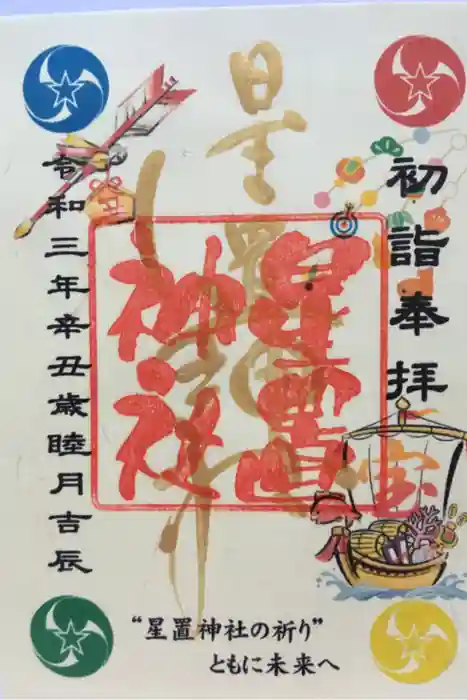 初詣奉拝
星置神社
星置神社
宝
令和三年辛丑歳睦月吉辰
“星置神社の祈り”
ともに未来へ